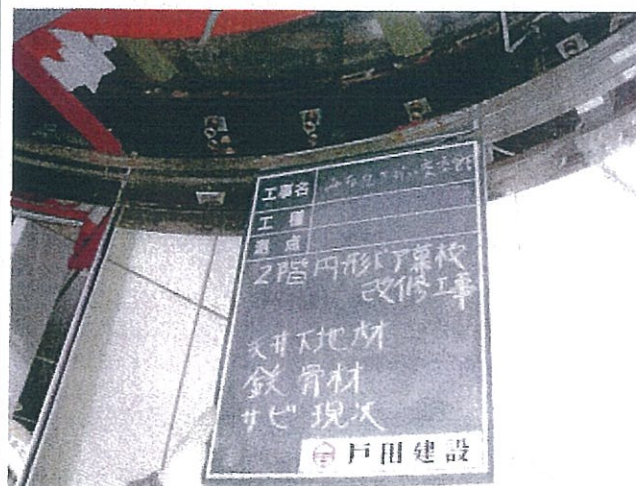 工事名
工種
測点
2階円形ドア東校
改修工事
天井下地材
鉄骨材
サビ現況
戸田建設